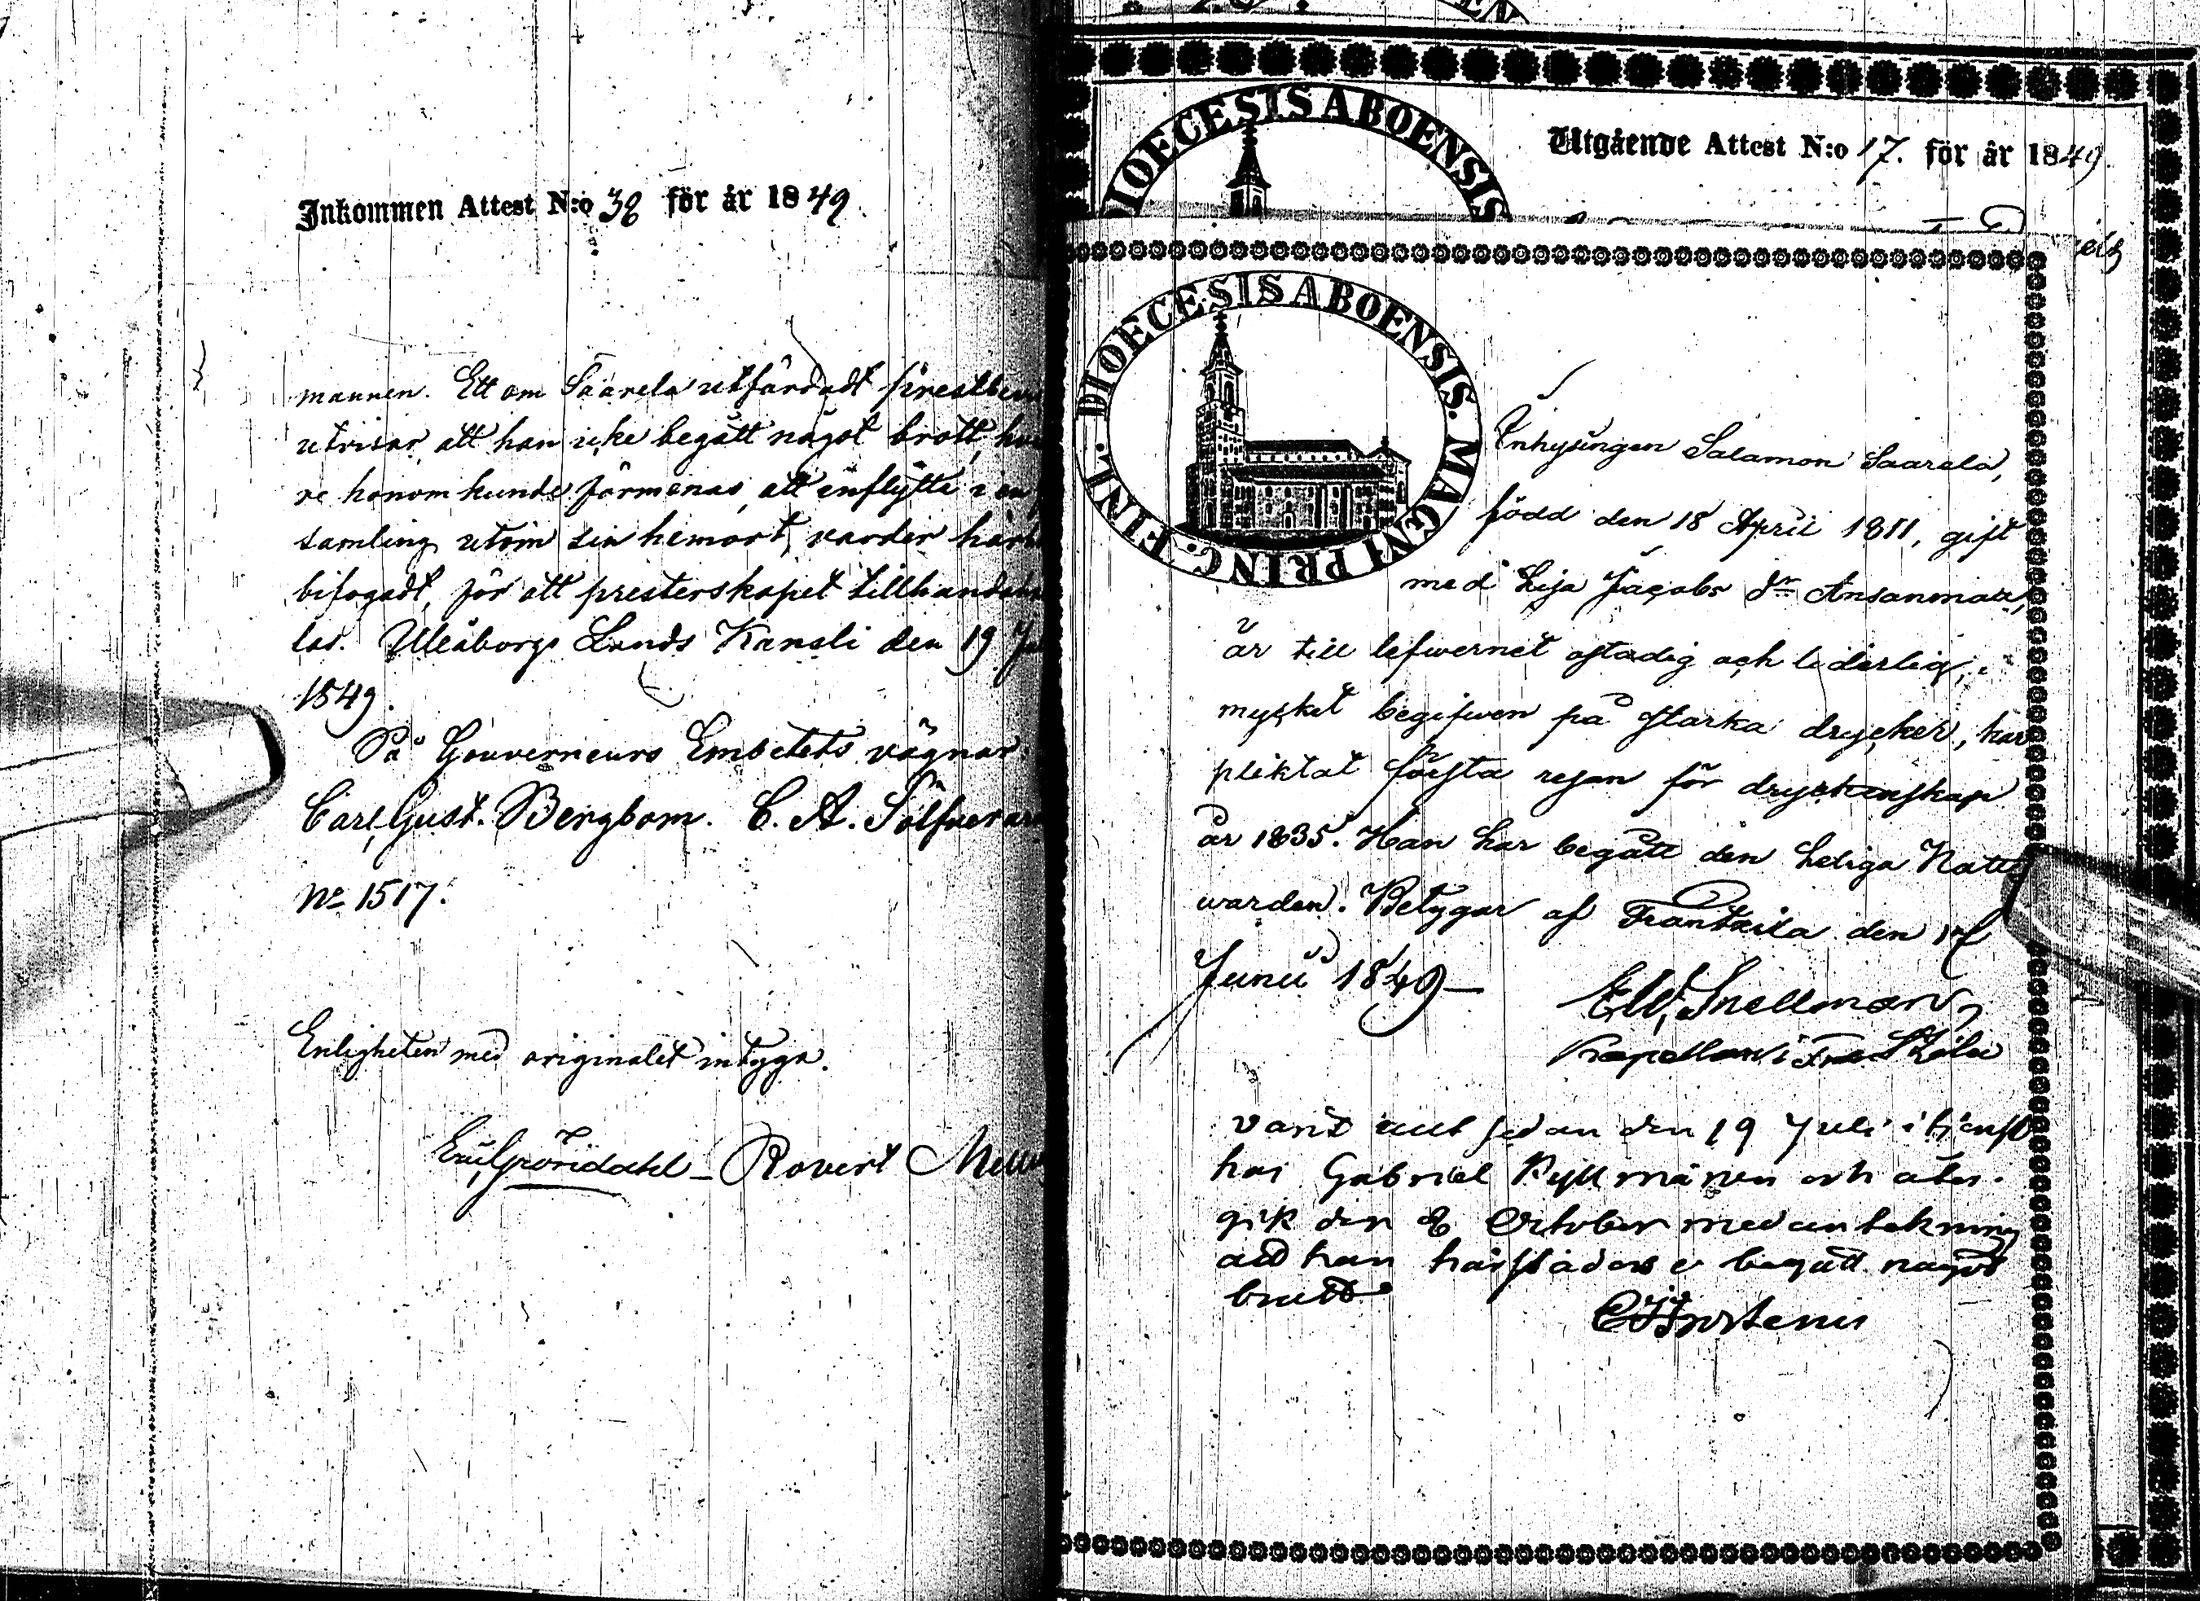 Inkommen Attest N:o 38 för år 1849.
mannen. Ett om Saarela utfärdadt
utvisar, att han icke begått något brott,
re honom kunde förmenas, att inflytta i en
samling utom sin hemort, varder
bifogadt, för att presterskapet
las. Uleåborgs Lands Kansli den 19
1849.
På Gouverneurs Embetets vägnar
Carl Gust. Bergbom. C. A.
No 1517.
Enligheten med originalet intyga.
Gröndahl Robert
Utgående Attest N:o 17. för år 1849.
DIOECESIS ABOENSIS
DIOECESIS ABOENSIS. MAGNI PRINC. FINL.
Inhysingen Salamon Saarela,
född den 18 April 1811, gift
med Lisa Jacobs dr Ansanmaa,
är till lefwernet ostadig och liderlig,
mycket begifwen på starka drycker, har
pliktat första resan för dryckenskap
år 1835. Han har begått den heliga Natt
warden. Betygar af Frantsila den
Junii 1849 —
Snellman
Kapellan i
varit sedan den 19 Juli i tjenst
hos Gabriel och åter-
gik den 8 October med anteckning
att han härstädes ej begått något
brott